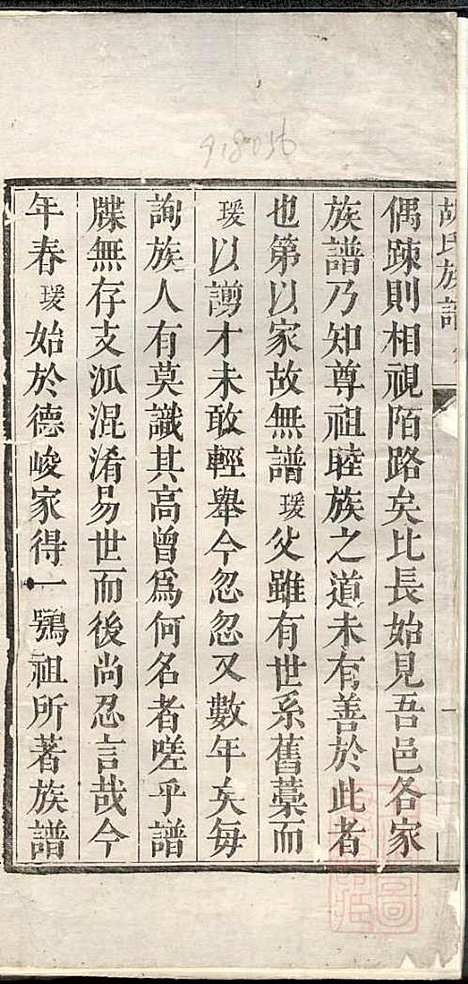 918056
胡氏族譜
偶踈則相視陌路矣比長始見吾邑各家
族譜乃知尊祖睦族之道未有善於此者
也第以家故無譜瑗父雖有世系舊藁而
瑗以謭才未敢輕舉今忽忽又數年矣每
詢族人有莫識其高曾為何名者嗟乎譜
牒無存支派混淆易世而後尚忍言哉今
年春瑗始於德峻家得一鶚祖所著族譜